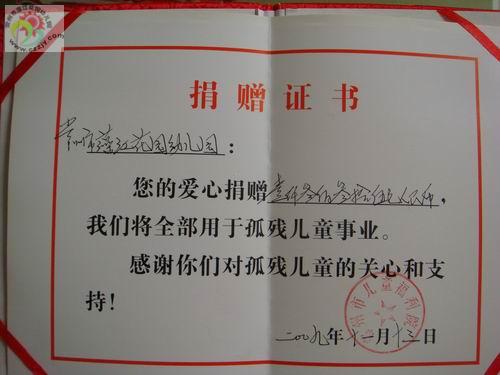 捐赠证书
常州市蓬江花园幼儿园：
您的爱心捐赠壹仟叁佰叁拾伍元人民币，
我们将全部用于孤残儿童事业。
感谢你们对孤残儿童的关心和支
持！
常州市儿童福利院
二〇〇九年十一月十三日